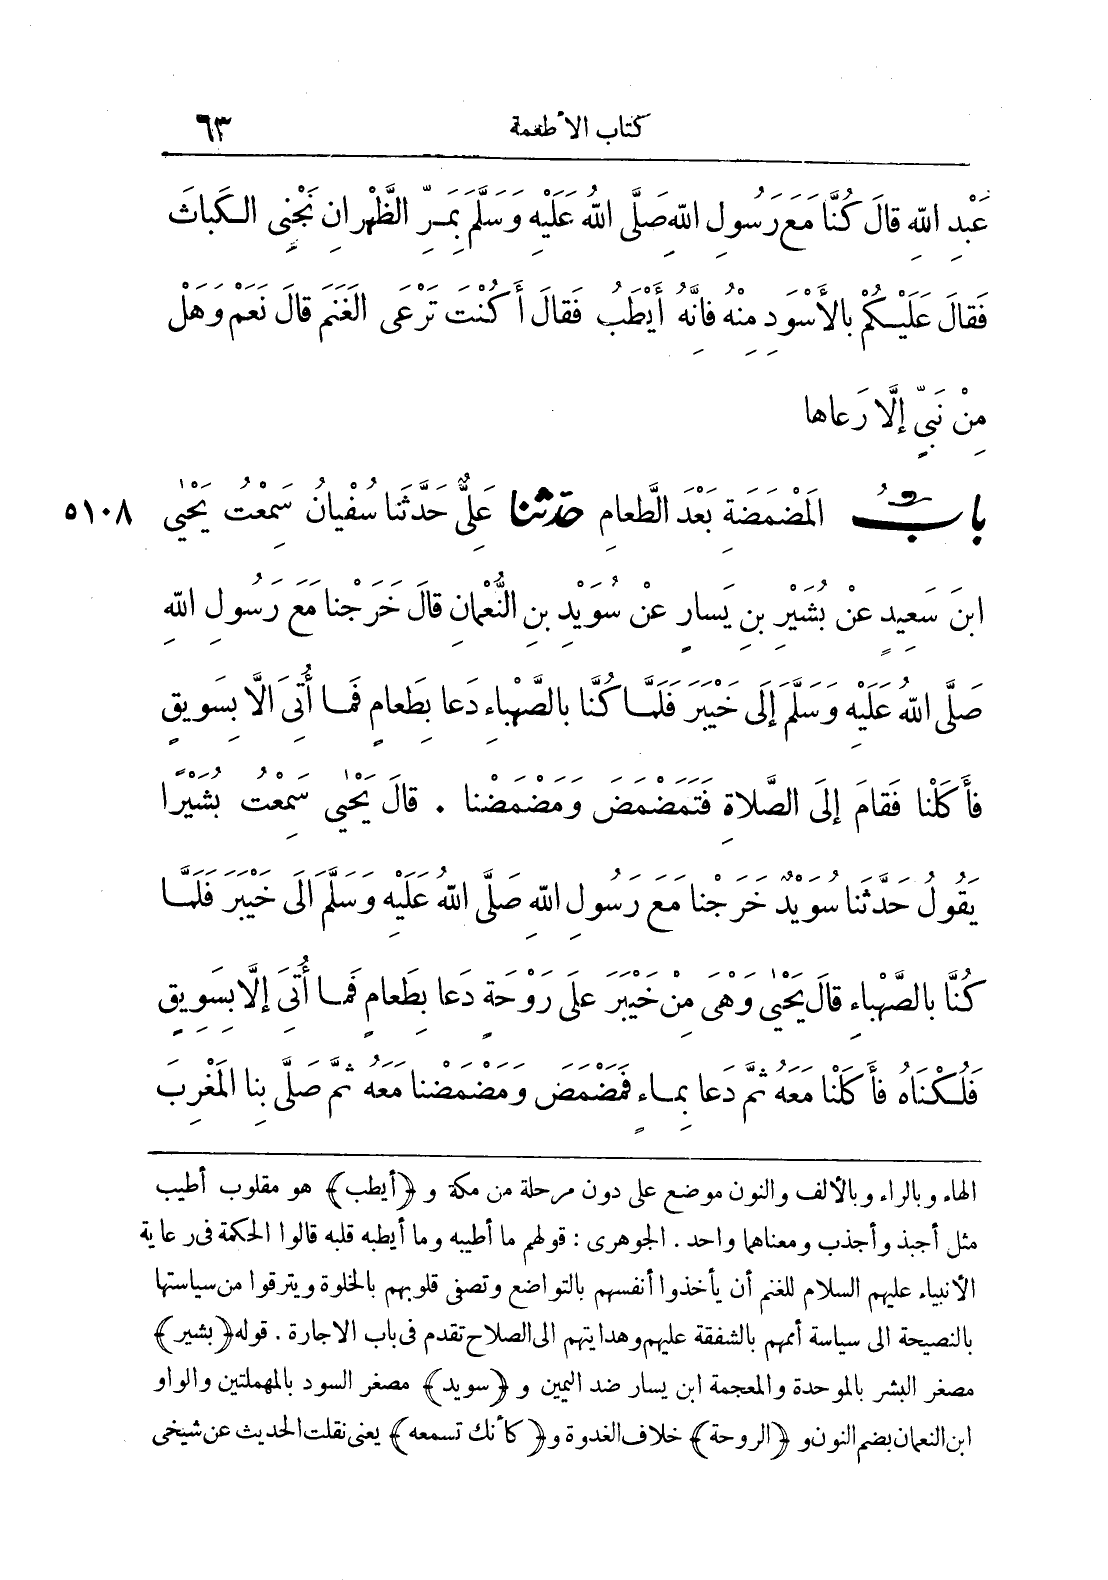 كتاب الأطعمة ٦٣
عَبْدِ اللهِ قالَ كُنَّا مَعَ رَسُولِ اللهِ صَلَّى اللهُ عَلَيْهِ وَسَلَّمَ بِمَرِّ الظَّهْرانِ نَجْنِى الكَباثَ
فَقالَ عَلَيْكُمْ بالأَسْوَدِ مِنْهُ فانَّهُ أَيْطَبُ فَقالَ أَكُنْتَ تَرْعَى الغَنَمَ قالَ نَعَمْ وَهَلْ
مِنْ نَبِىٍّ إلَّا رَعاها
بابُ المَضْمَضَةِ بَعْدَ الطَّعامِ حدثنا عَلِىٌّ حَدَّثَنا سُفْيانُ سَمِعْتُ يَحْيَى ٥١٠٨
ابنَ سَعِيدٍ عنْ بُشَيْرِ بنِ يَسارٍ عنْ سُوَيْدِ بنِ النُّعْمانِ قالَ خَرَجْنا مَعَ رَسُولِ اللهِ
صَلَّى اللهُ عَلَيْهِ وَسَلَّمَ إلَى خَيْبَرَ فَلَمَّا كُنَّا بالصَّهْباءِ دَعا بِطَعامٍ فَما أُتِىَ الَّا بِسَوِيقٍ
فأَكَلْنا فَقامَ إلَى الصَّلاةِ فَتَمَضْمَضَ وَمَضْمَضْنا . قالَ يَحْيَى سَمِعْتُ بُشَيْرًا
يَقُولُ حَدَّثَنا سُوَيْدٌ خَرَجْنا مَعَ رَسُولِ اللهِ صَلَّى اللهُ عَلَيْهِ وَسَلَّمَ الَى خَيْبَرَ فَلَمَّا
كُنَّا بالصَّهْباءِ قالَ يَحْيَى وَهْىَ مِنْ خَيْبَرَ علَى رَوْحَةٍ دَعا بِطَعامٍ فَما أُتِىَ إلَّا بِسَوِيقٍ
فَلُكْنَاهُ فأَكَلْنا مَعَهُ ثُمَّ دَعا بِماءٍ فَمَضْمَضَ وَمَضْمَضْنا مَعَهُ ثُمَّ صَلَّى بِنا المَغْرِبَ
الهاء وبالراء وبالألف والنون موضع على دون مرحلة من مكة و ﴿أيطب﴾ هو مقلوب أطيب
مثل أجبذ وأجذب ومعناهما واحد . الجوهرى : قولهم ما أطيبه وما أيطبه قلبه قالوا الحكمة فى رعاية
الأنبياء عليهم السلام للغنم أن يأخذوا أنفسهم بالتواضع وتصفى قلوبهم بالخلوة ويترقوا من سياستها
بالنصيحة الى سياسة أممهم بالشفقة عليهم وهدايتهم الى الصلاح تقدم فى باب الاجارة . قوله ﴿بشير﴾
مصغر البشر بالموحدة والمعجمة ابن يسار ضد اليمين و ﴿سويد﴾ مصغر السود بالمهملتين والواو
ابن النعمان بضم النون و ﴿الروحة﴾ خلاف الغدوة و ﴿كأنك تسمعه﴾ يعنى نقلت الحديث عن شيخى